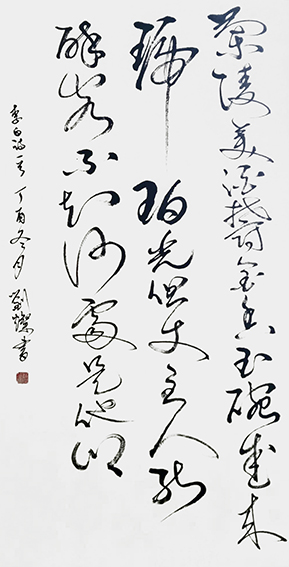 蘭陵美酒鬱金香玉碗盛来
琥珀光但使主人能
醉客不知何處是他鄉
李白詩一首丁酉冬月劉燦書